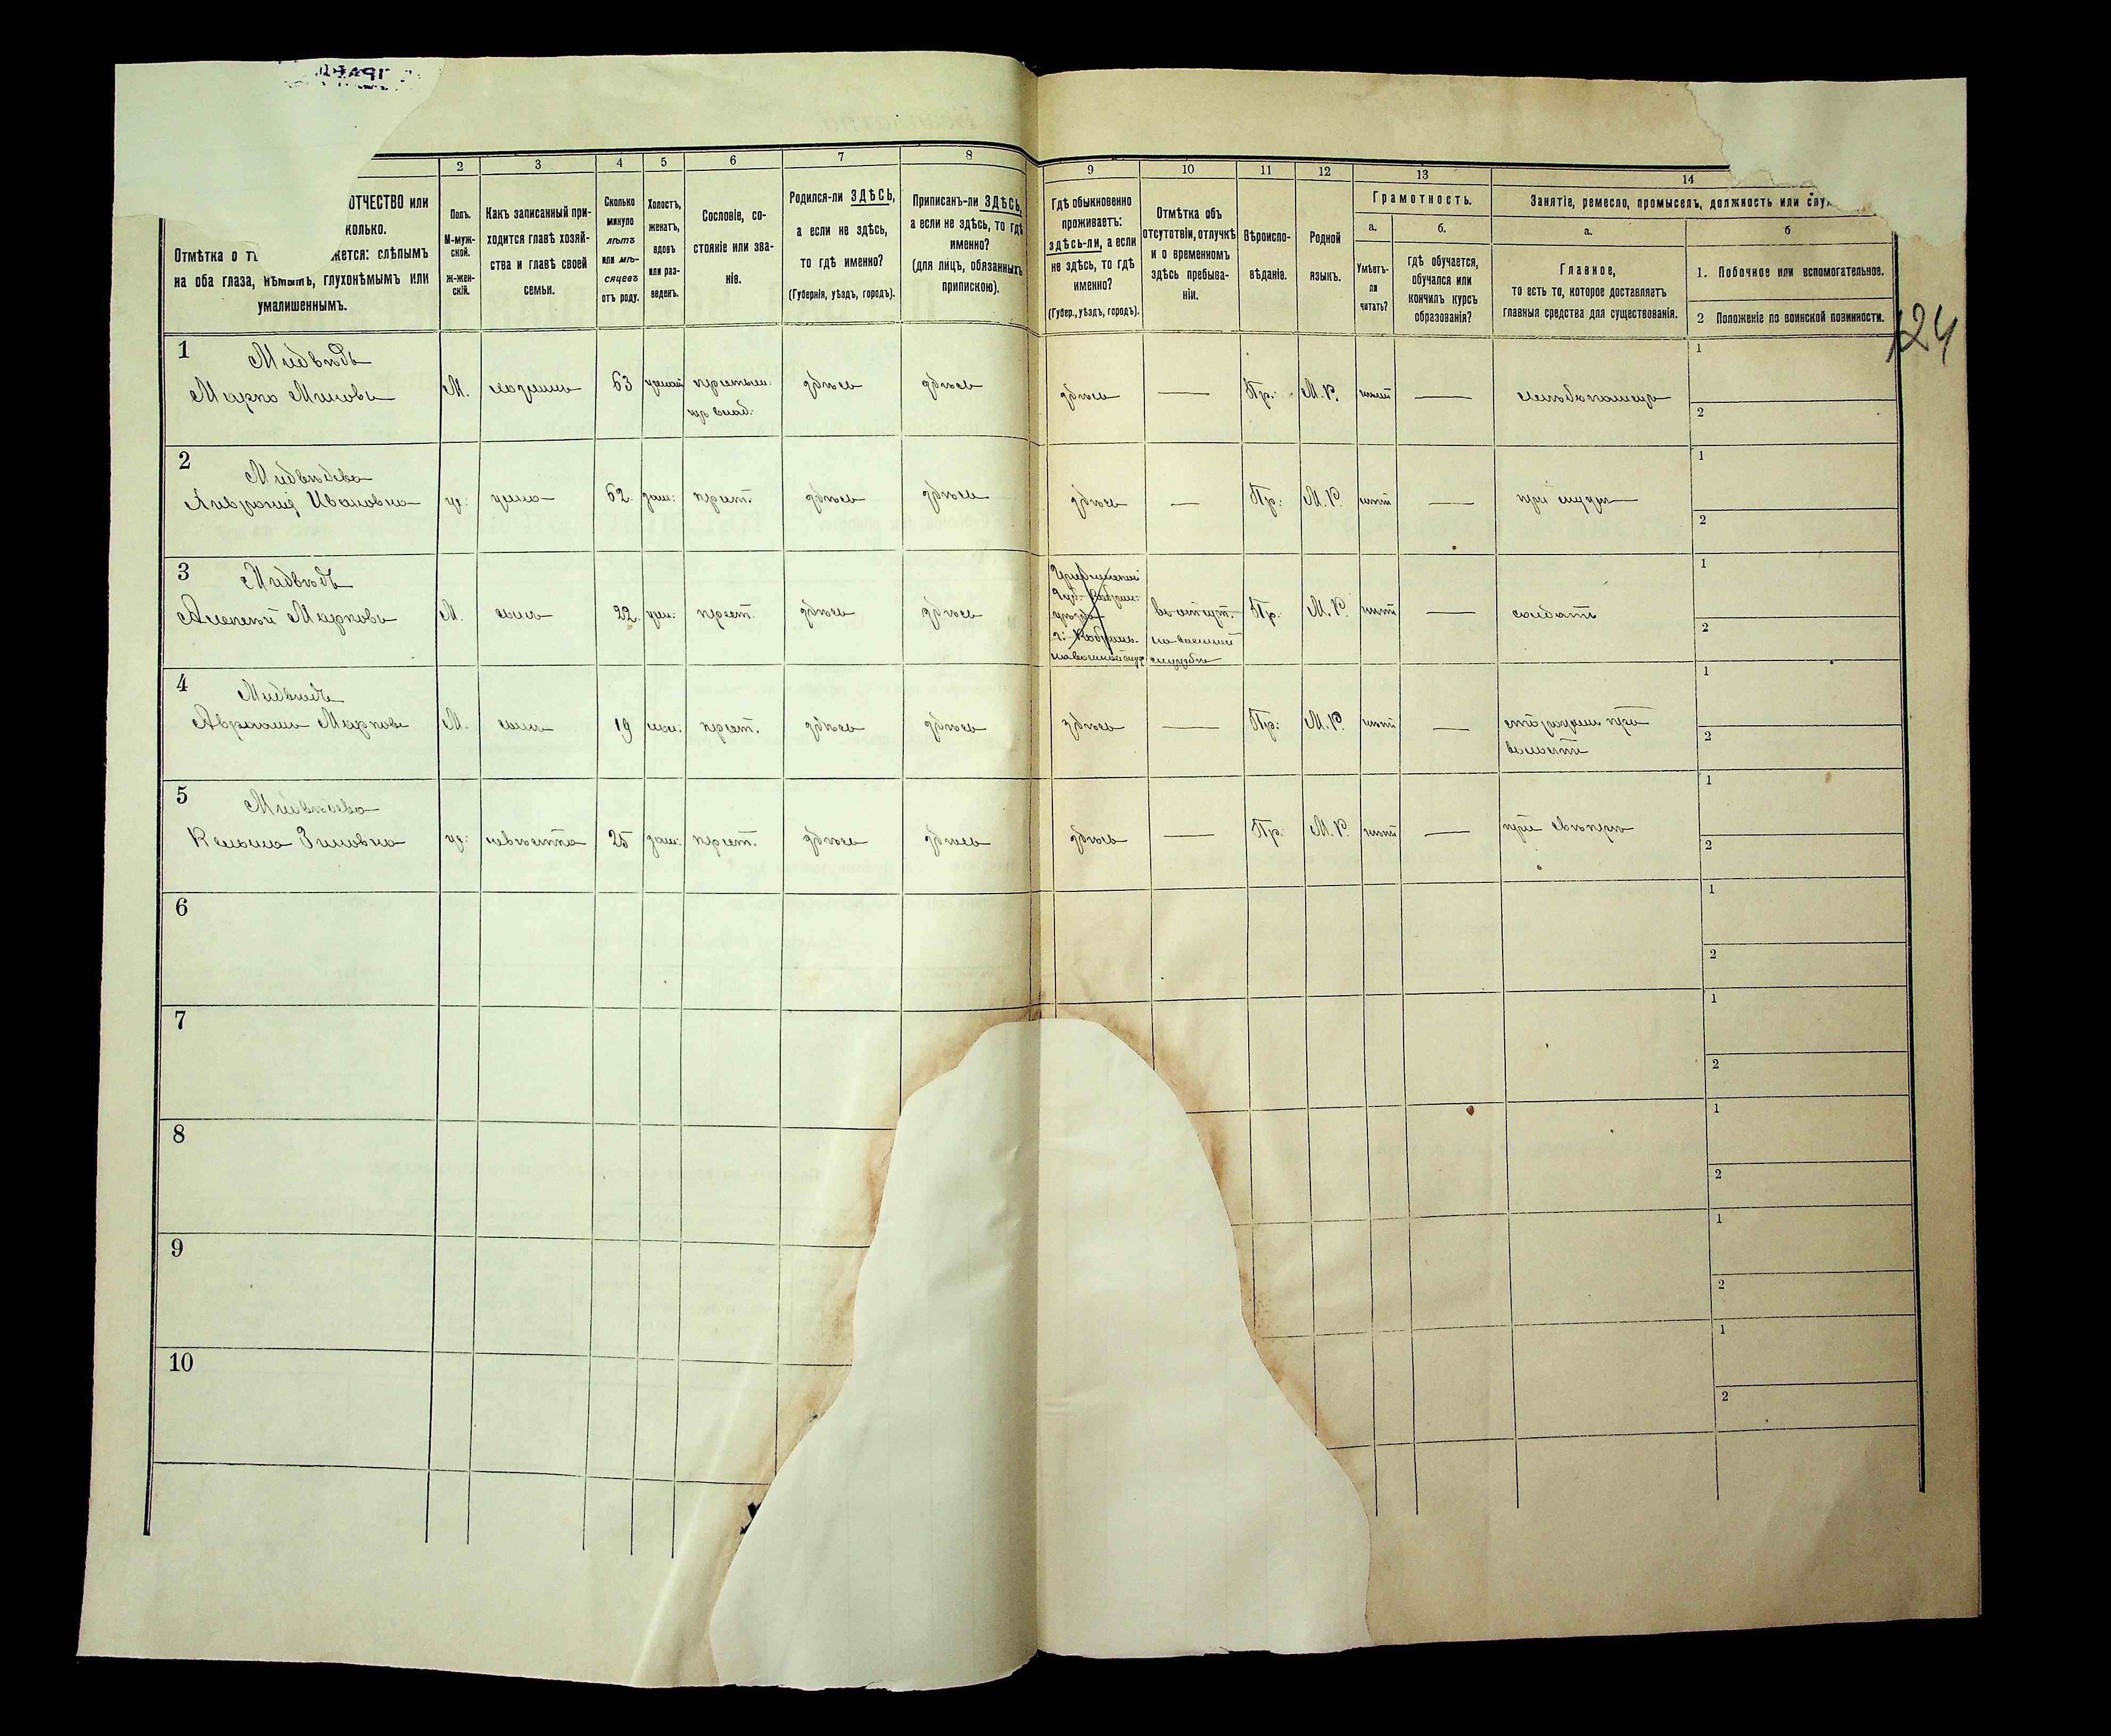 2
3
4
5
6
7
8
ОТЧЕСТВО или
колько.
Отмѣтка о тѣ жется: слѣпымъ
на оба глаза, нѣмымъ, глухонѣмымъ или
умалишеннымъ.
Полъ.
М-муж-
ской.
Ж-жен-
скій.
Какъ записанный при-
ходится главѣ хозяй-
ства и главѣ своей
семьи.
Сколько
минуло
лѣтъ
или мѣ-
сяцевъ
отъ роду.
Холостъ,
женатъ,
вдовъ
или раз-
веденъ.
Сословіе, со-
стояніе или зва-
ніе.
Родился-ли ЗДѢСЬ,
а если не здѣсь,
то гдѣ именно?
(Губернія, уѣздъ, городъ).
Приписанъ-ли ЗДѢСЬ,
а если не здѣсь, то гдѣ
именно?
(для лицъ, обязанныхъ
припискою).
9
10
11
12
13
14
Гдѣ обыкновенно
проживаетъ:
здѣсь-ли, а если
не здѣсь, то гдѣ
именно?
(Губер., уѣздъ, городъ).
Отмѣтка объ
отсутствіи, отлучкѣ
и о временномъ
здѣсь пребыва-
ніи.
Вѣроиспо-
вѣданіе.
Родной
языкъ.
Грамотность.
а.
Умѣетъ-
ли
читать?
б.
гдѣ обучается,
обучался или
кончилъ курсъ
образованія?
Занятіе, ремесло, промыселъ, должность или служ
а.
Главное,
то есть то, которое доставляетъ
главныя средства для существованія.
б
1. Побочное или вспомогательное.
2 Положеніе по воинской повинности.
124
1
Мидвѣдь
Марко
М.
хазяинъ
63
крестьян.
здѣсь
здѣсь
здѣсь
Пр.
М. Р.
нѣтъ
1
2
2
Мидвѣдева
Ивановна
ж.
жена
62
зам.
крест.
здѣсь
здѣсь
здѣсь
Пр.
М. Р.
нѣтъ
при мужѣ
1
2
3
Мидвѣдь
Алексѣй Марковъ
М.
сынъ
22
жен.
крест.
здѣсь
здѣсь
на военной
службѣ
Пр.
М. Р.
нѣтъ
солдатъ
1
2
4
Мидвѣдь
Марковъ
М.
сынъ
19
крест.
здѣсь
здѣсь
здѣсь
Пр.
М. Р.
нѣтъ
при
волости
1
2
5
Мидвѣдева
Зиновна
ж.
невѣстка
25
зам.
крест.
здѣсь
здѣсь
здѣсь
Пр.
М. Р.
нѣтъ
при свекрѣ
1
2
6
1
2
7
1
2
8
1
2
9
1
2
10
1
2